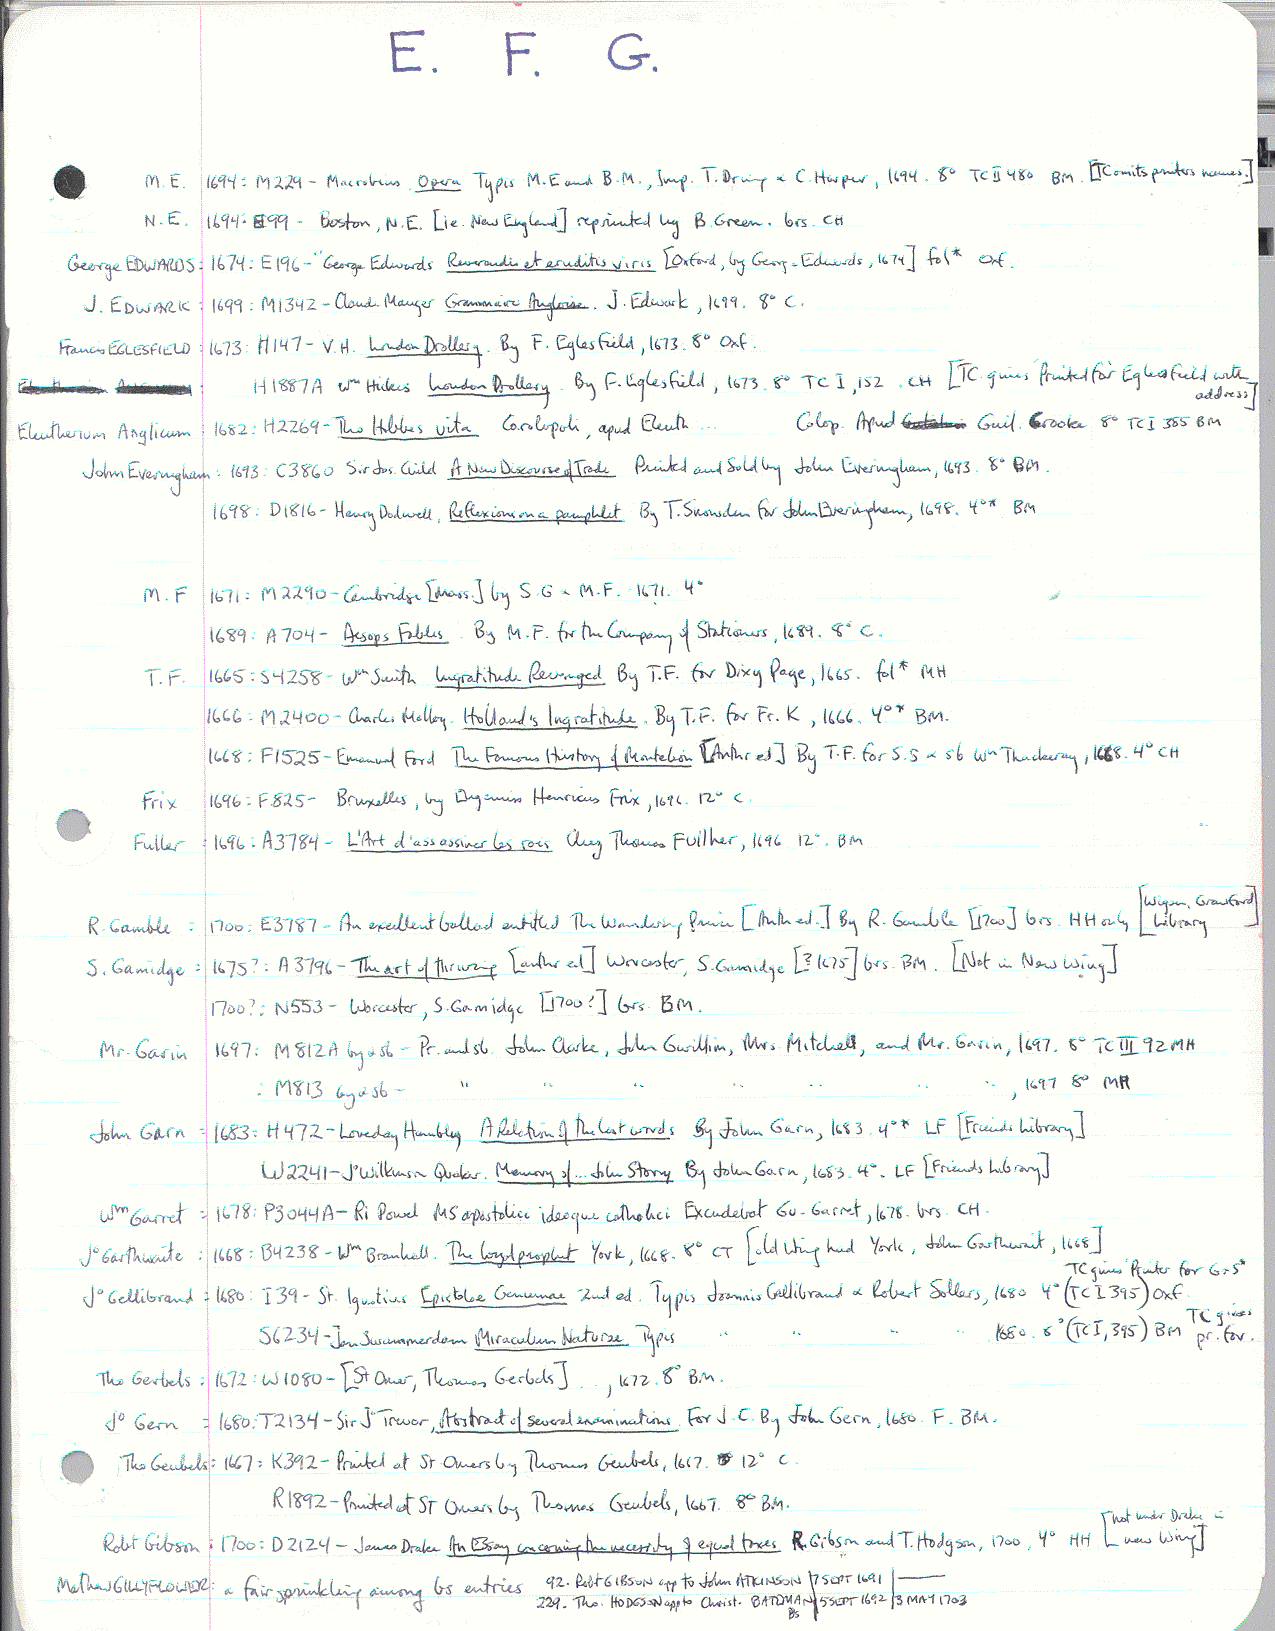 E. F. G.
M.E. 1694: M229 - Macrobius Opera Typis M.E and B.M., Imp. T. Dring & C. Harper, 1694. 8° TC II 480 BM. [TC omits printers names.]
N.E. 1694: E99 - Boston, N.E. [ie. New England] reprinted by B. Green. brs. CH
George EDWARDS: 1674: E196 - George Edwards Reverendis et eruditis viris [Oxford, by George Edwards, 1674] fol* Oxf.
J. EDWARK: 1699: M1342 - Claude Mauger Grammaire Angloise. J. Edwark, 1699. 8° C.
Francis EGLESFIELD: 1673: H147 - V.H. London Drollery. By F. Eglesfield, 1673. 8° Oxf.
H1887A Wm Hickes London Drollery. By F. Eglesfield, 1673. 8° TC I, 152. CH [TC. gives Printed for Eglesfield with address]
Eleutherium Anglicum: 1682: H2269 - Tho Hobbes vita Carolopoli, apud Eleuth ... Colop. Apud Guil. Crooke 8° TC I 385 BM
John Everingham: 1693: C3860 Sir Jos. Child A New Discourse of Trade Printed and Sold by John Everingham, 1693. 8° BM.
1698: D1816 - Henry Dodwell, Reflexions on a pamphlet By T. Snowden for John Everingham, 1698. 4°* BM
M.F 1671: M2290 - Cambridge [Mass.] by S.G & M.F. 1671. 4°
1689: A704 - Aesops Fables. By M.F. for the Company of Stationers, 1689. 8° C.
T.F. 1665: S4258 - Wm Smith Ingratitude Revenged By T.F. for Dixy Page, 1665. fol* MH
1666: M2400 - Charles Molloy. Holland's Ingratitude. By T.F. for Fr. K, 1666. 4°* BM.
1668: F1525 - Emanuel Ford The Famous History of Montelion [Anthr ed] By T.F. for S.S & sb Wm Thackeray, 1668. 4° CH
Frix 1696: F825 - Bruxelles, by Henricus Frix, 1696. 12° C.
Fuller: 1696: A3784 - L'Art d'assassiner les rois Chez Thomas Fuilher, 1696 12°. BM
R. Gamble: 1700: E3787 - An excellent ballad entitled The Wandering Prince [Anth ed.] By R. Gamble [1700] brs. HH only [Wigan, Crawford Library]
S. Gamidge: 1675?: A3796 - The art of thriving [anthr ed] Worcester, S. Gamidge [? 1675] brs. BM. [Not in New Wing]
1700?: N553 - Worcester, S. Gamidge [1700?] brs. BM.
Mr. Garin 1697: M812A by & sb - Pr. and sb. John Clarke, John Gwillim, Mrs Mitchell, and Mr. Garin, 1697. 8° TC III 92 MH
: M813 by & sb - " " " " " " ", 1697 8° MH
John Garn: 1683: H472 - Loveday Hambly A Relation of the last words By John Garn, 1683. 4°* LF [Friends Library]
W2241 - Jo Wilkinson Quaker. Memory of ... John Story By John Garn, 1683. 4°. LF [Friends Library]
Wm Garret: 1678: P3044A - Ri Powel MS apostolici ideoque catholici Excudebat Gu. Garret, 1678. brs. CH.
Jo Garthwaite: 1668: B4238 - Wm Bramhall. The loyal prophet York, 1668. 8° CT [old Wing had York, John Garthwait, 1668]
Jo Gellibrand: 1680: I39 - St. Ignatius Epistolae Genuinae 2nd ed. Typis Joannis Gellibrand & Robert Sollers, 1680 4° (TC I 395) Oxf. TC gives Printer for G & S
S6234 - Jan Swammerdam Miraculum Naturae Typis " " " " 1680. 8° (TC I, 395) BM TC gives pr. for.
Tho Gerbels: 1672: W1080 - [St Omer, Thomas Gerbels] , 1672. 8° BM.
Jo Gern: 1680: T2134 - Sir Jo Trevor, Abstract of several examinations. For J.C. By John Gern, 1680. F. BM.
Tho Geubels: 1667: K392 - Printed at St Omers by Thomas Geubels, 1667. 12° C.
R1892 - Printed at St Omers by Thomas Geubels, 1667. 8° BM.
Robt Gibson: 1700: D2124 - James Drake An Essay concerning the necessity of equal taxes R. Gibson and T. Hodgson, 1700, 4° HH [not under Drake in new Wing]
Mathew GILLYFLOWER: a fair sprinkling among bs entries 92. Robt GIBSON app to John ATKINSON | 7 SEPT 1691 |
229. Tho. HODGSON app to Christ. BATEMAN Bs | 5 SEPT 1692 | 3 MAY 1703